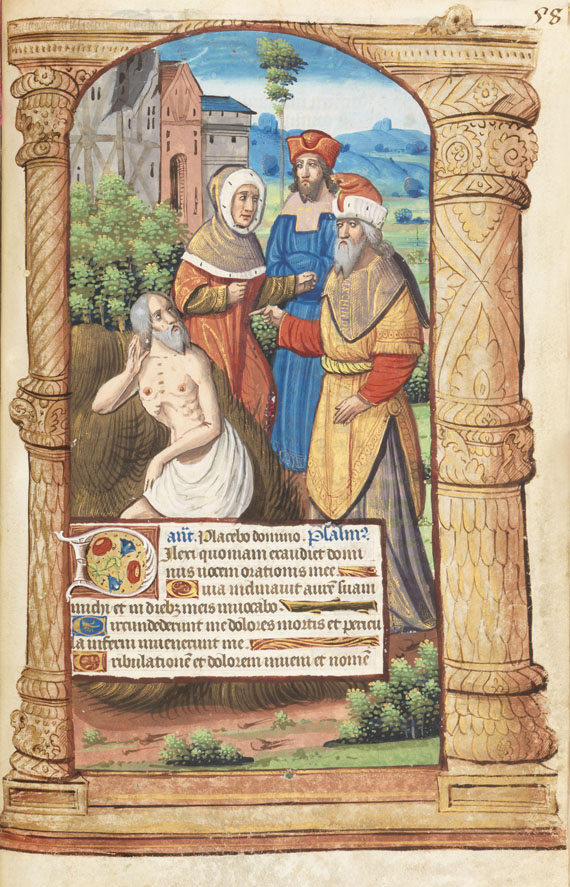 58
añt. Placebo domino. Psalmꝰ.
Dilexi quoniam exaudiet domi
nus uocem orationis mee
Quia inclinauit aurẽ suam
michi et in diebꝫ meis inuocabo.
Circundederunt me dolores mortis et pericu
la inferni inuenerunt me.
Tribulationẽ et dolorem inueni et nomẽ